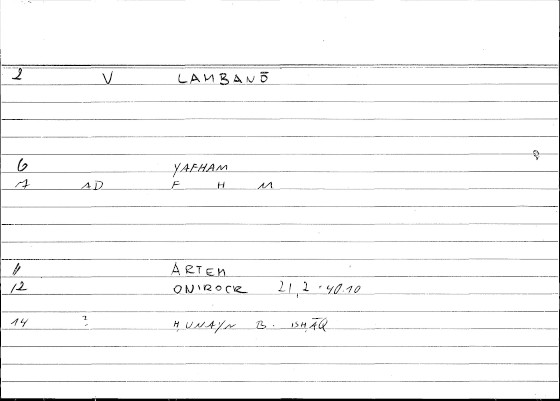 2 V LAMBANŌ
6 YAFHAM
7 AD F H M
11 ARTEM
12 ONIROCR 21,2 · 40.10
14 ? ḤUNAYN B. ISḤĀQ